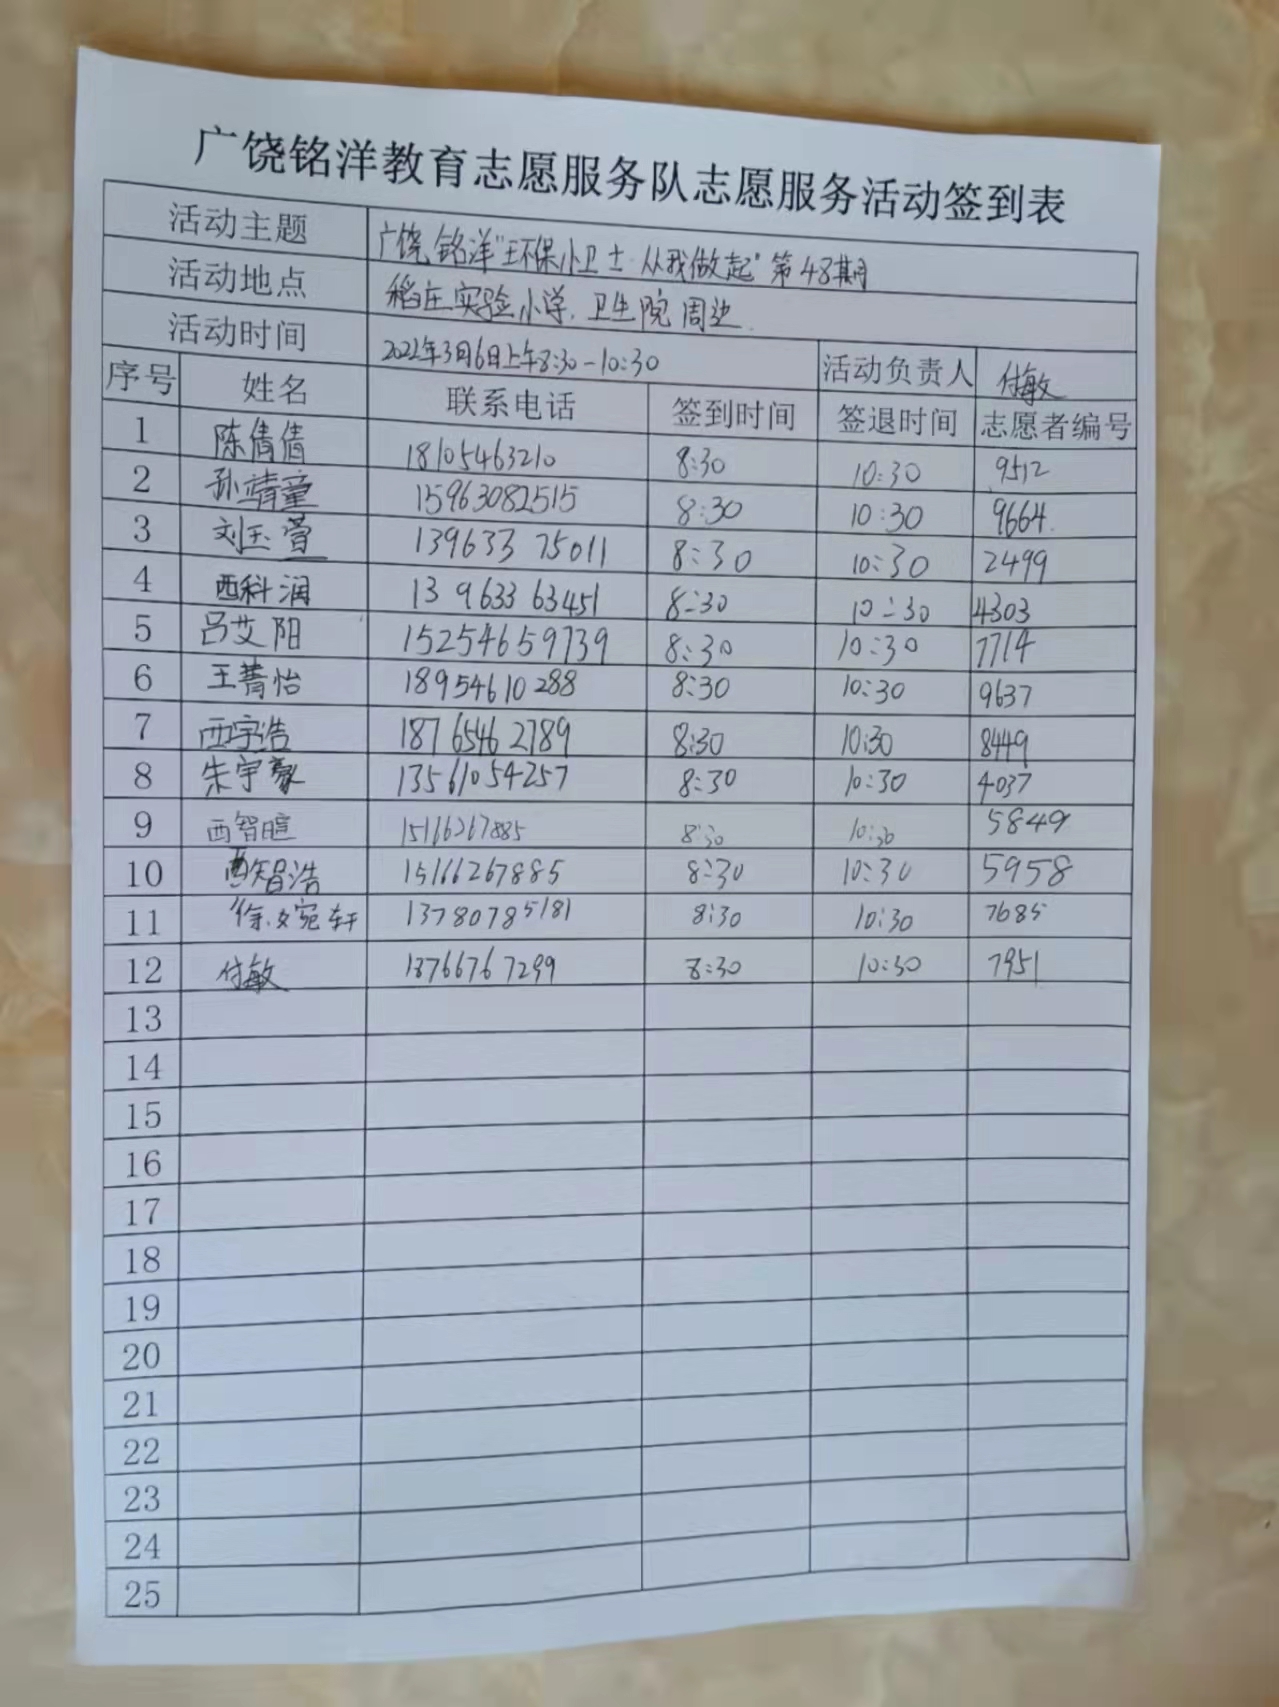 广饶铭洋教育志愿服务队志愿服务活动签到表
活动主题 广饶铭洋"环保小卫士·从我做起"第48期
活动地点 稻庄实验小学、卫生院周边
活动时间 2022年3月6日上午8:30-10:30 活动负责人 付敏
序号 姓名 联系电话 签到时间 签退时间 志愿者编号
1 陈倩倩 18105463210 8:30 10:30 9512
2 孙靖童 15963082515 8:30 10:30 9664
3 刘玉萱 13963375011 8:30 10:30 2499
4 西科润 13963363451 8:30 10:30 4303
5 吕艾阳 15254659739 8:30 10:30 7714
6 王菁怡 18954610288 8:30 10:30 9637
7 西宇浩 18765462789 8:30 10:30 8449
8 朱宇豪 13561054257 8:30 10:30 4037
9 西智暄 15166267885 8:30 10:30 5849
10 西智浩 15166267885 8:30 10:30 5958
11 徐婉轩 13780785181 8:30 10:30 7685
12 付敏 18766767299 8:30 10:30 7951
13
14
15
16
17
18
19
20
21
22
23
24
25